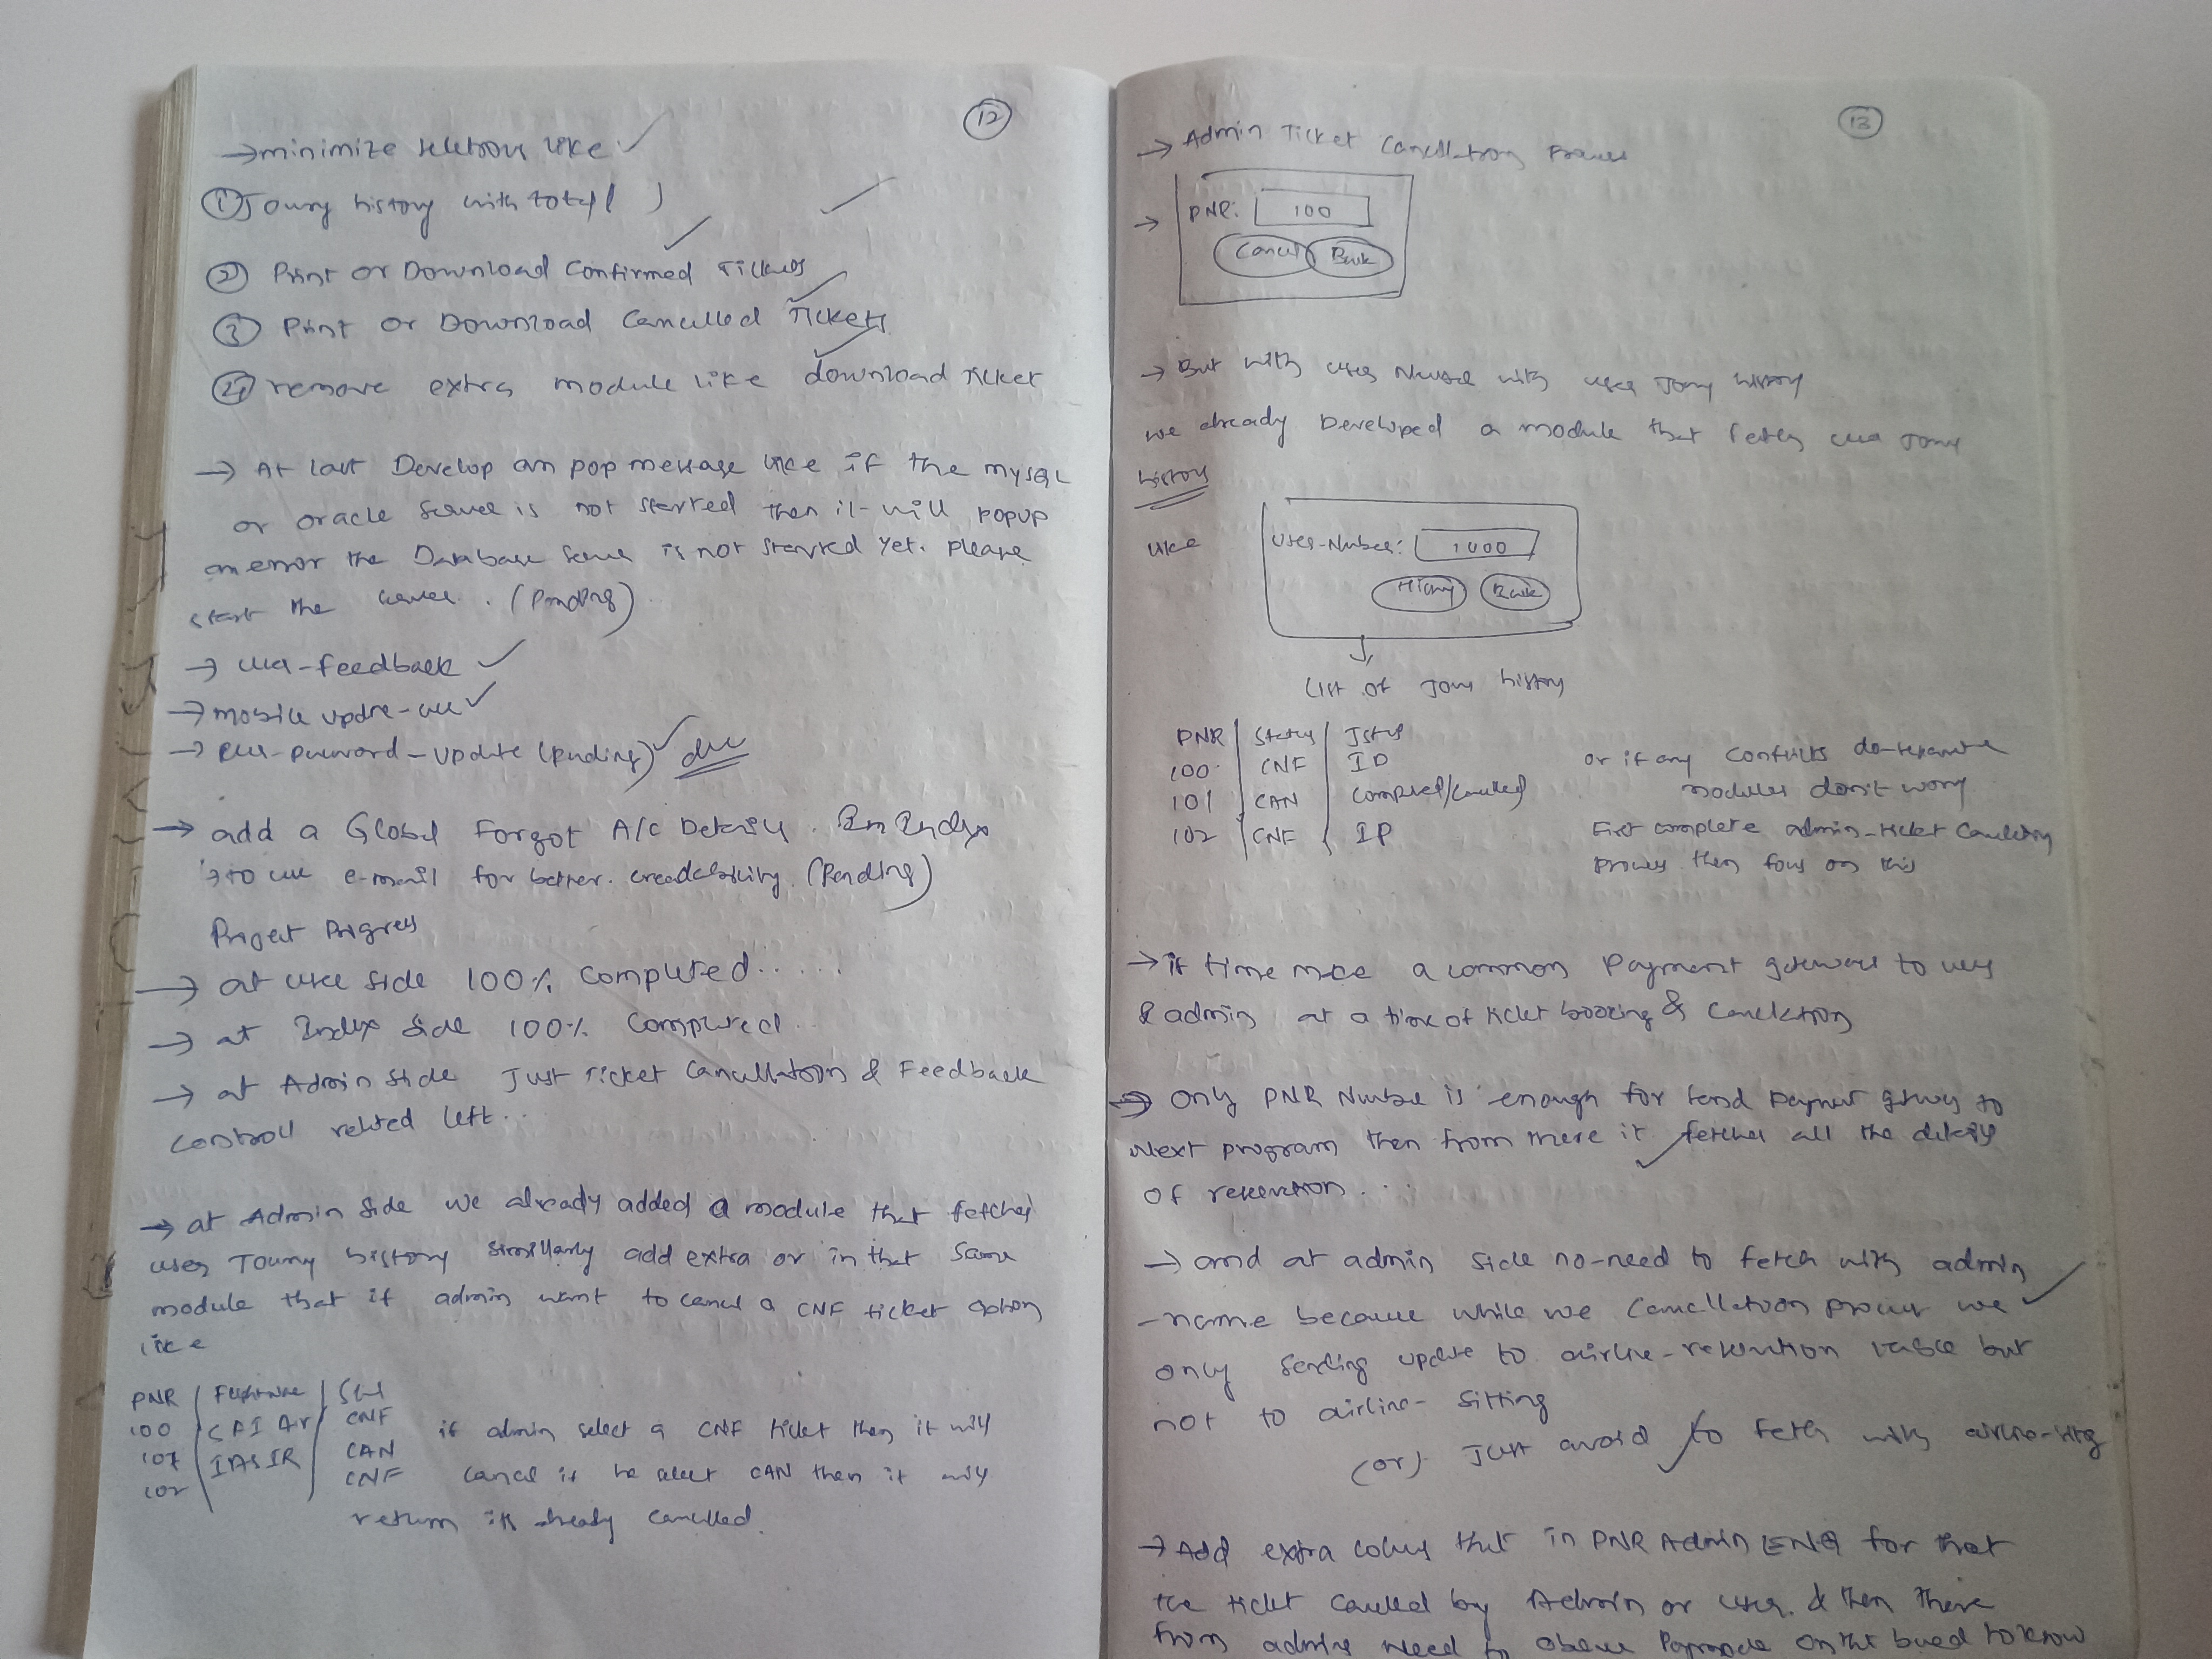 (12)
→ minimize selection like ✓
① Toury history with total ) ✓
② Print or Download confirmed Tickets ✓
③ Print or Download Cancelled Tickets ✓
④ remove extra module like download Ticket ✓
→ At last Develop an pop message like if the mysql
or oracle server is not started then it will popup
an error the Database server is not started yet. please
start the server. (Pending)
→ user-feedback ✓
→ mobile update-user ✓
→ user-password-update (pending) ✓
→ add a Global forgot A/c Details. In Index
use e-mail for better. (Pending)
Project Progress
→ at user side 100% Completed....
→ at Index side 100% Completed..
→ at Admin side Just Ticket Cancellation & Feedback
Control related left..
→ at Admin side we already added a module that fetches
user Toury history similarly add extra or in that same
module that if admin want to cancel a CNF ticket option
like
PNR | | 
100 | | CNF if admin select a CNF ticket then it will
101 | | CAN cancel it he select CAN then it will
102 | | CNF return it's already cancelled.
(13)
→ Admin Ticket Cancellation
→ PNR: 100
Cancel Back
→ But with user Number with user Toury history
we already Developed a module that fetches user Toury
history
like
User-Number: 1000
History Back
↓
List of Toury history
PNR | Status | 
100 | CNF | 
101 | CAN | Completed/Cancelled
102 | CNF | IP
or if any conflicts
modules don't worry
First complete admin-ticket
process then focus on this
→ if time make a common Payment gateway to user
& admin at a time of ticket booking & Cancellation
→ only PNR Number is enough for send payment gateway to
Next program then from there it fetches all the details
of reservation...
→ and at admin side no-need to fetch with admin
-name because while we Cancellation process we ✓
only sending update to airline-reservation table but
not to airline-sitting
(or) Just avoid to fetch with
→ Add extra column that in PNR Admin ENQ for that
the ticket cancelled by Admin or user. & then there
from admin need to